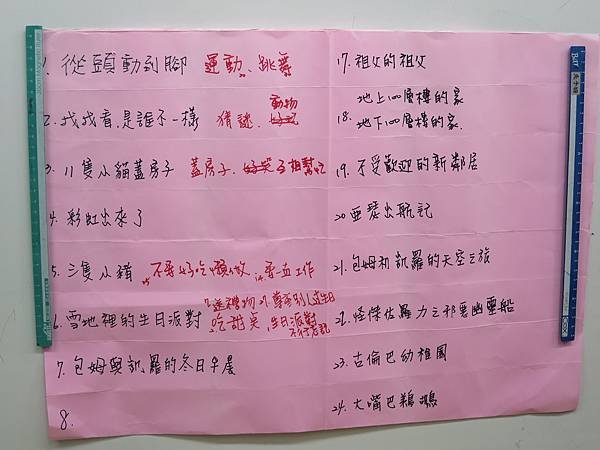 1. 從頭動到腳 運動、跳舞
2. 找找看,是誰不一樣 猜謎、動物
3. 11隻小貓蓋房子 蓋房子、好笑 互相幫忙
4. 彩虹出來了
5. 三隻小豬 不要好吃懶做 要一直工作
送禮物 尊重別人
6. 雪地裡的生日派對 吃甜點 生日派對
7. 包姆與凱羅的冬日早晨
8.
17. 祖父的祖父
地上100層樓的家
18. 地下100層樓的家
19. 不受歡迎的新鄰居
20. 亞瑟出航記
21. 包姆和凱羅的天空之旅
22. 怪傑佐羅力之邪惡幽靈船
23. 古倫巴幼稚園
24. 大嘴巴鵜鶘